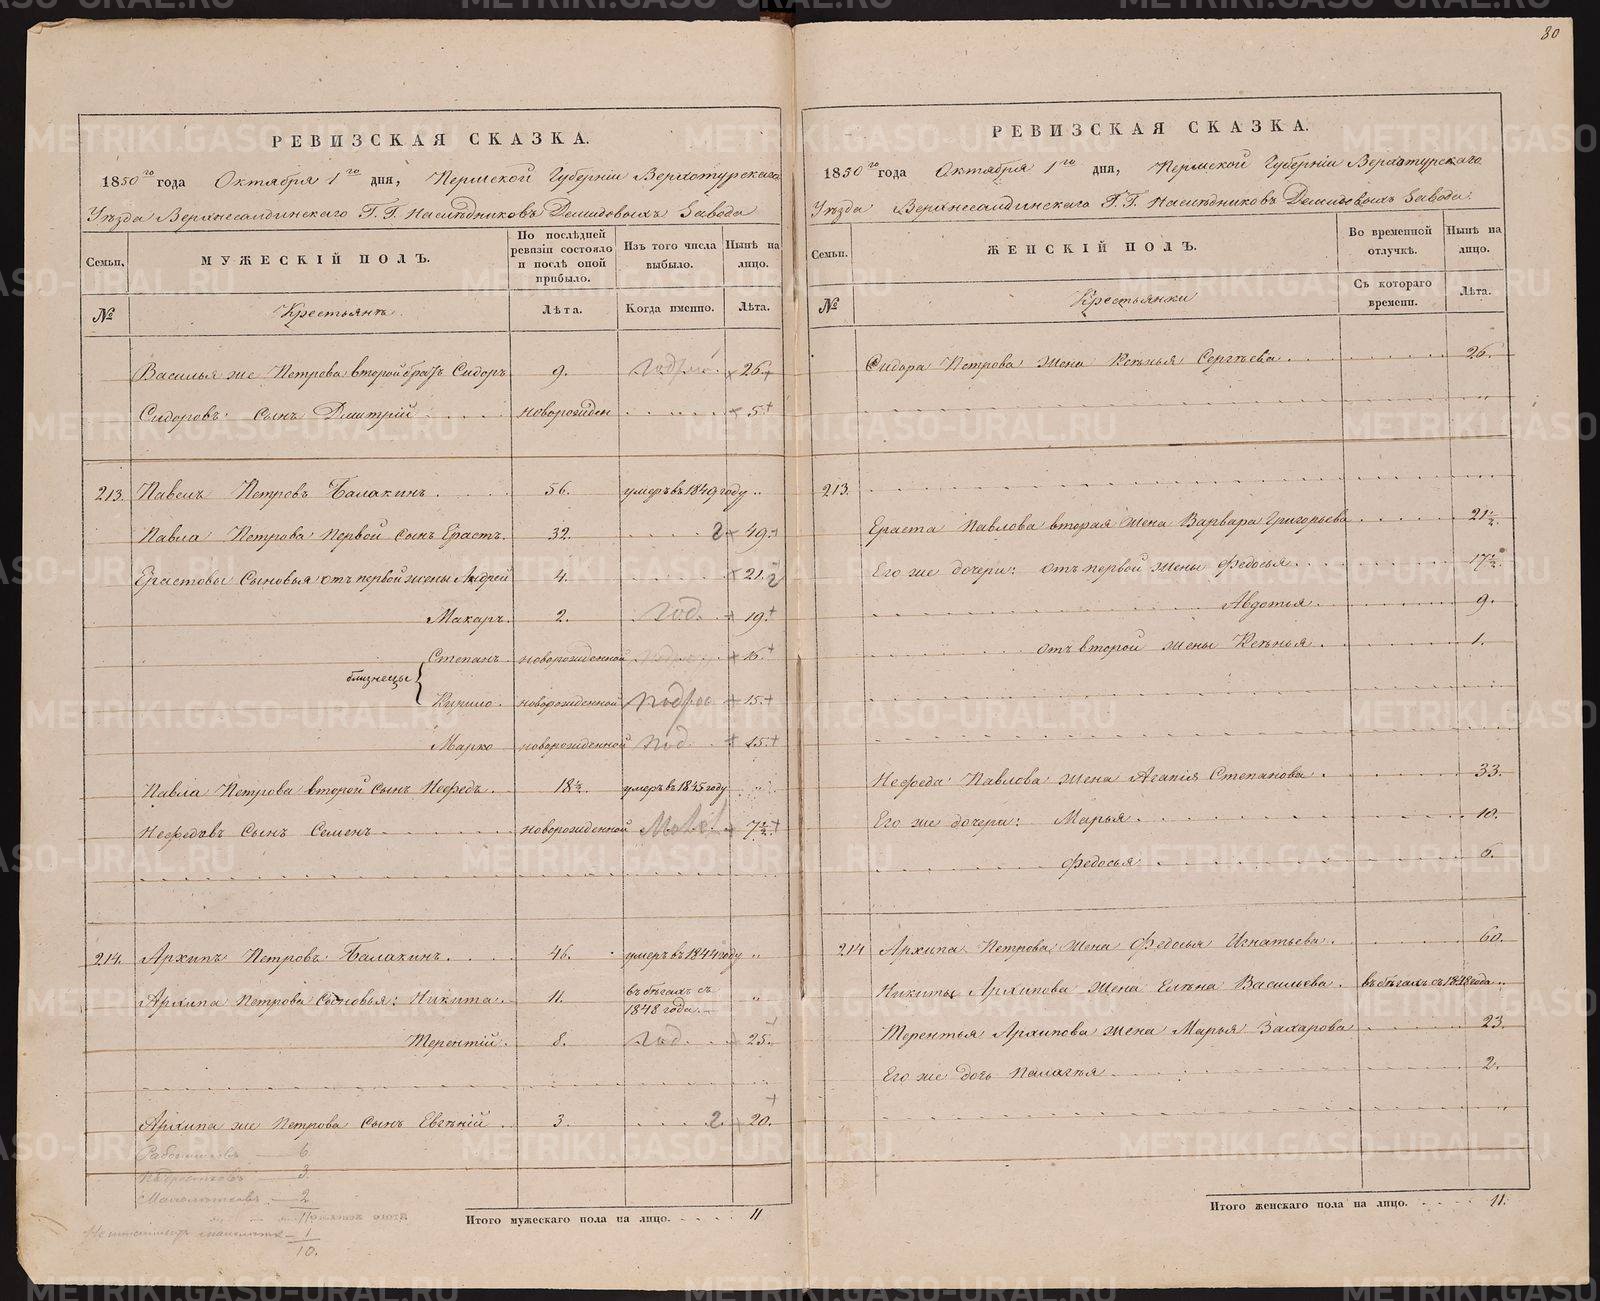 80
РЕВИЗСКАЯ СКАЗКА.
1850го года Октября 1го дня, Пермской Губернiи Верхотурскаго
Уѣзда Верхнесалдинскаго Г.Г. Наслѣдниковъ Демидовыхъ Завода
Семьи.
МУЖЕСКIЙ ПОЛЪ.
По послѣдней ревизiи состояло и послѣ оной прибыло.
Изъ того числа выбыло.
Нынѣ на лицо.
№
Крестьянъ.
Лѣта.
Когда именно.
Лѣта.
Василья же Петрова второй братъ Сидоръ 9. 26.
Сидоровъ сынъ Дмитрiй новорожден 5.
213. Павелъ Петровъ Балакинъ 56. умеръ въ 1849 году „
Павла Петрова первой сынъ Ерастъ. 32. 2 49.
Ерастовы сыновья отъ первой жены Андрей 4. 21. 2
Макаръ. 2. год. 19.
Степанъ новорожденной 15.
близнецы {
Кирило. новорожденной 15.
Марко новорожденной под. 15.
Павла Петрова второй сынъ Нефедъ. 18½. умеръ въ 1845 году „
Нефедовъ сынъ Семенъ новорожденной Малол 7½.
214. Архипъ Петровъ Балакинъ. 46. умеръ въ 1844 году „
Архипа Петрова сыновья: Никита. 11. въ бѣгахъ съ 1848 года. „
Терентiй. 8. год. 25.
Архипа же Петрова сынъ Евгѣнiй 3. 2. 20.
Работниковъ — 6
Подростковъ — 3.
Малолѣтковъ — 2
11
1
10.
Итого мужескаго пола на лицо. 11
РЕВИЗСКАЯ СКАЗКА.
1850го года Октября 1го дня, Пермской Губернiи Верхотурскаго
Уѣзда Верхнесалдинскаго Г.Г. Наслѣдниковъ Демидовыхъ Завода.
Семьи.
ЖЕНСКIЙ ПОЛЪ.
Во временной отлучкѣ.
Нынѣ на лицо.
№
Крестьянки
Съ котораго времени.
Лѣта.
Сидора Петрова жена Ксѣнья Сергѣева 26.
213.
Ераста Павлова вторая жена Варвара Григорьева 21½.
Его же дочери: отъ первой жены Федосья 17½.
Авдотья. 9.
отъ второй жены Ксѣнья. 1.
Нефеда Павлова жена Агапiя Степанова. 33.
Его же дочери: Марья. 10.
Федосья 6.
214 Архипа Петрова жена Федосья Игнатьева. 60.
Никиты Архипова жена Елѣна Васильева. въ бѣгахъ съ 1848 года „
Терентья Архипова жена Марья Захарова 23.
Его же дочь Палагѣя 2.
Итого женскаго пола на лицо. 11.
METRIKI.GASO-URAL.RU